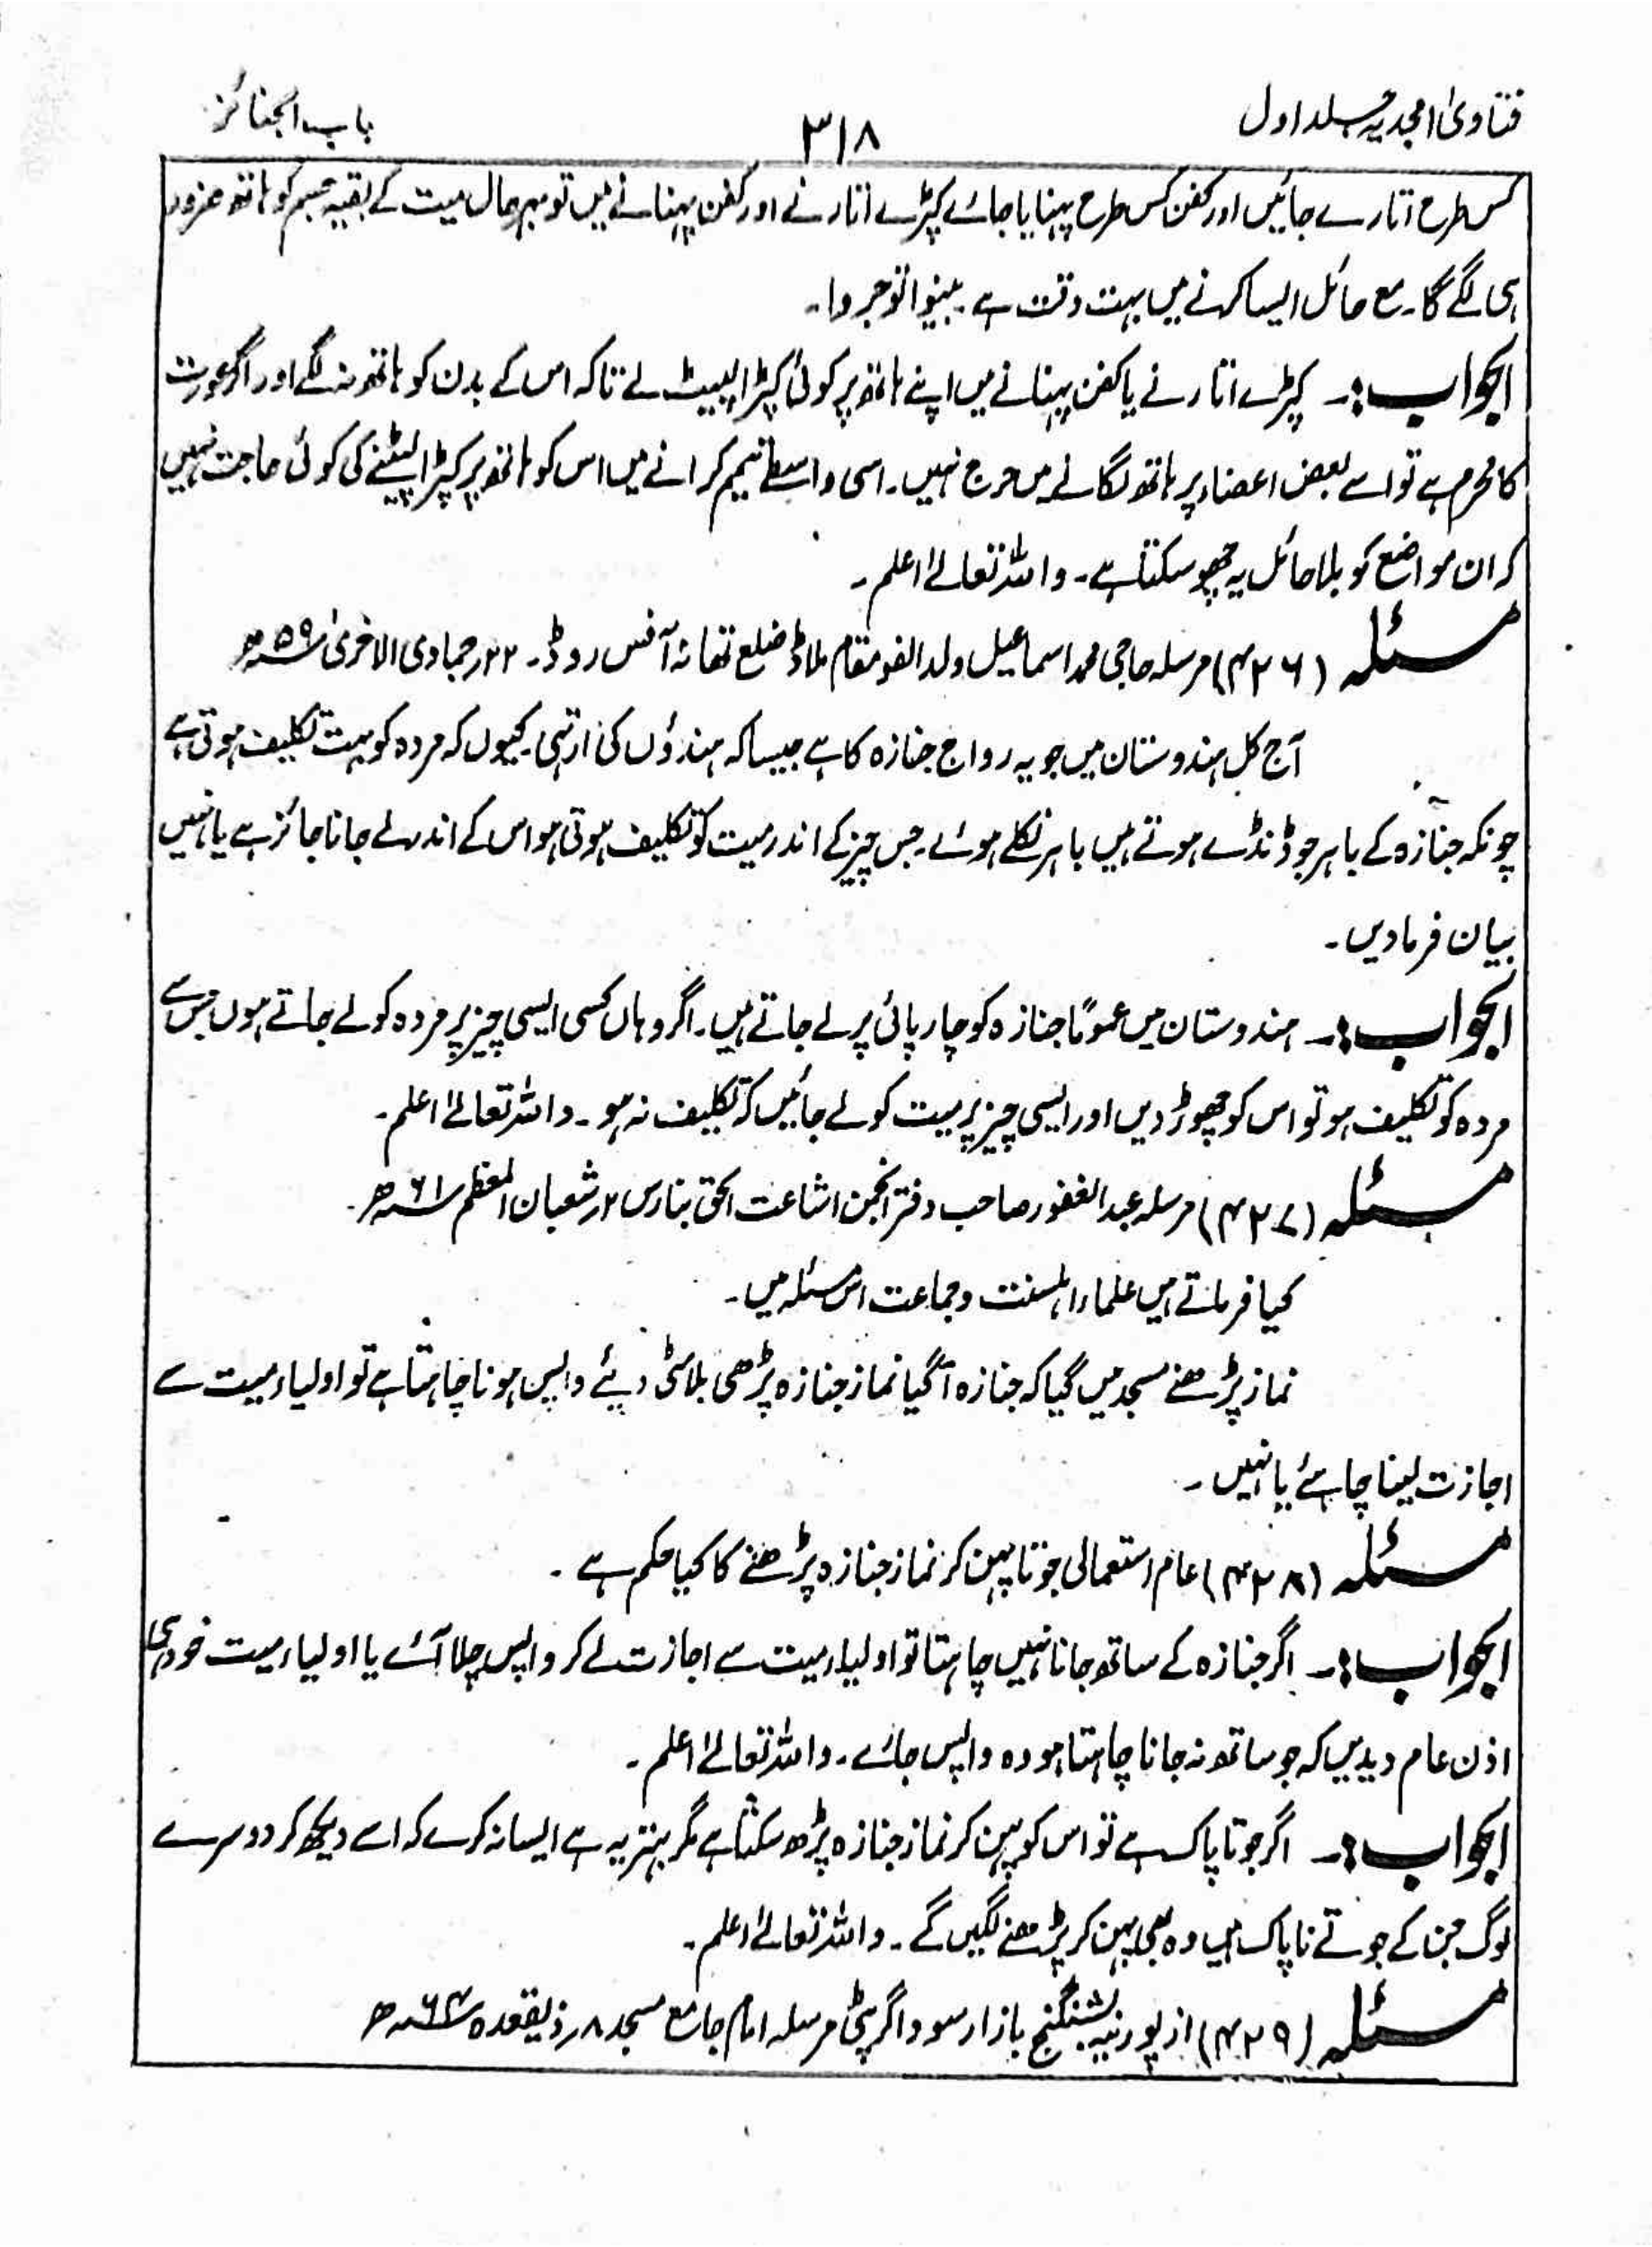 فتاویٰ امجدیہ جلد اول
۳۱۸
باب الجنائز
کس طرح اتارے جائیں اور کفن کس طرح پہنایا جائے کپڑے اتارنے اور کفن پہنانے میں تو بہرحال میت کے بقیہ جسم کو ہاتھ ضرور
ہی لگے گا۔ مع حائل ایسا کرنے میں بہت دقت ہے۔ بینوا توجروا۔
الجواب :۔ کپڑے اتارنے یا کفن پہنانے میں اپنے ہاتھ پر کوئی کپڑا لپیٹ لے تاکہ اس کے بدن کو ہاتھ نہ لگے اور اگر عورت
کا محرم ہے تو اسے بعض اعضاء پر ہاتھ لگانے میں حرج نہیں۔ اسی واسطے تیمم کرانے میں اس کو ہاتھ پر کپڑا لپیٹنے کی کوئی حاجت نہیں
کہ ان مواضع کو بلا حائل یہ چھو سکتا ہے۔ واللہ تعالےٰ اعلم۔
مسئلہ (۴۲۶) مرسلہ حاجی محمد اسماعیل ولد الفو مقام ملاڈ ضلع تھانہ آفس روڈ۔ ۲۲ر جمادی الاخریٰ ۵۹ھ
آج کل ہندوستان میں جو یہ رواج جنازہ کا ہے جیسا کہ ہندوؤں کی ارتھی۔ کیوں کہ مردہ کو بہت تکلیف ہوتی ہے
چونکہ جنازہ کے باہر جو ڈنڈے ہوتے ہیں باہر نکلے ہوئے۔ جس چیز کے اندر میت کو تکلیف ہوتی ہو اس کے اندر لے جانا جائز ہے یا نہیں
بیان فرمادیں۔
الجواب :۔ ہندوستان میں عموماً جنازہ کو چارپائی پر لے جاتے ہیں۔ اگر وہاں کسی ایسی چیز پر مردہ کو لے جاتے ہوں جس سے
مردہ کو تکلیف ہو تو اس کو چھوڑ دیں اور ایسی چیز پر میت کو لے جائیں کہ تکلیف نہ ہو۔ واللہ تعالےٰ اعلم۔
مسئلہ (۴۲۷) مرسلہ عبدالغفور صاحب دفتر انجمن اشاعت الحق بنارس ۲ر شعبان المعظم ۶۱ھ۔
کیا فرماتے ہیں علماء اہلسنت و جماعت اس مسئلہ میں۔
نماز پڑھنے مسجد میں گیا کہ جنازہ آگیا نماز جنازہ پڑھی بلا مٹی دیئے واپس ہونا چاہتا ہے تو اولیاء میت سے
اجازت لینا چاہئے یا نہیں۔
مسئلہ (۴۲۸) عام استعمالی جوتا پہن کر نماز جنازہ پڑھنے کا کیا حکم ہے۔
الجواب :۔ اگر جنازہ کے ساتھ جانا نہیں چاہتا تو اولیاء میت سے اجازت لے کر واپس چلا آئے یا اولیاء میت خود ہی
اذن عام دیدیں کہ جو ساتھ نہ جانا چاہتا ہو وہ واپس جائے۔ واللہ تعالےٰ اعلم۔
الجواب :۔ اگر جوتا پاک ہے تو اس کو پہن کر نماز جنازہ پڑھ سکتا ہے مگر بہتر یہ ہے ایسا نہ کرے کہ اسے دیکھ کر دوسرے
لوگ جن کے جوتے ناپاک ہیں وہ بھی پہن کر پڑھنے لگیں گے۔ واللہ تعالےٰ اعلم۔
مسئلہ (۴۲۹) از پورنیہ بازار سوداگر پٹی مرسلہ امام جامع مسجد ۸ر ذیقعدہ ۶۴ھ